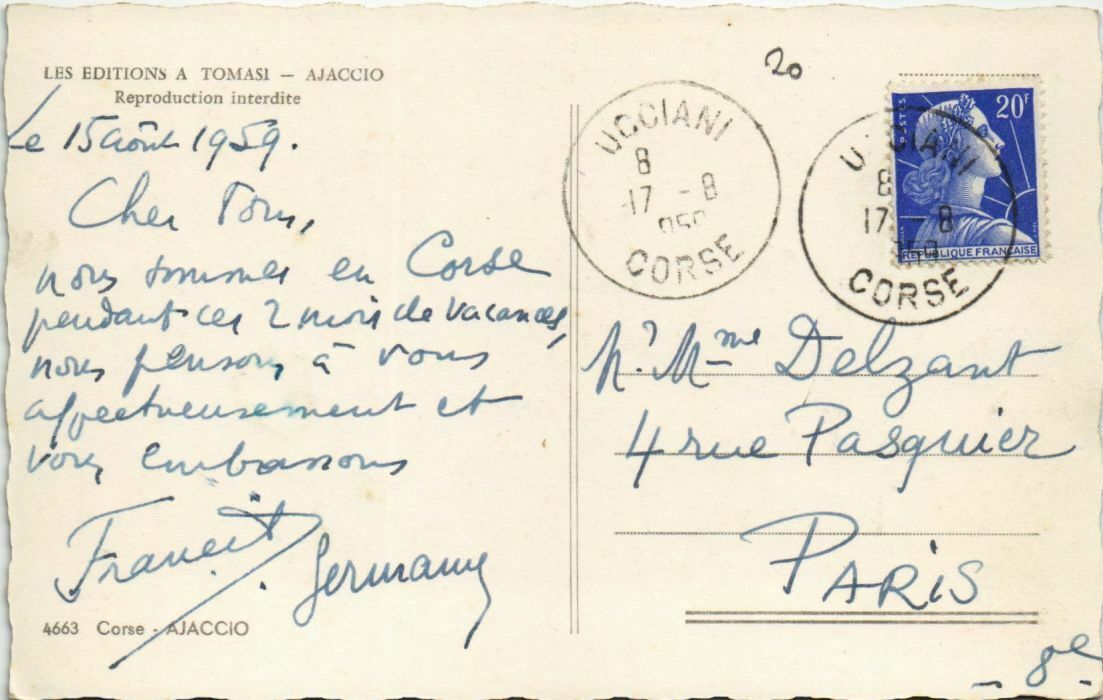 LES EDITIONS A TOMASI — AJACCIO
Reproduction interdite
Le 15 août 1959.
Cher Tous,
nous sommes en Corse
pendant ces 2 mois de vacances,
nous pensons à vous
affectueusement et
vous embrassons
Germany
4663 Corse - AJACCIO
20
UCCIANI
8
17 - 8
CORSE
UCCIANI
8
17 - 8
CORSE
POSTES
20F
REPUBLIQUE FRANÇAISE
Mr Mme Delzant
4 rue Pasquier
PARIS
- 8e -